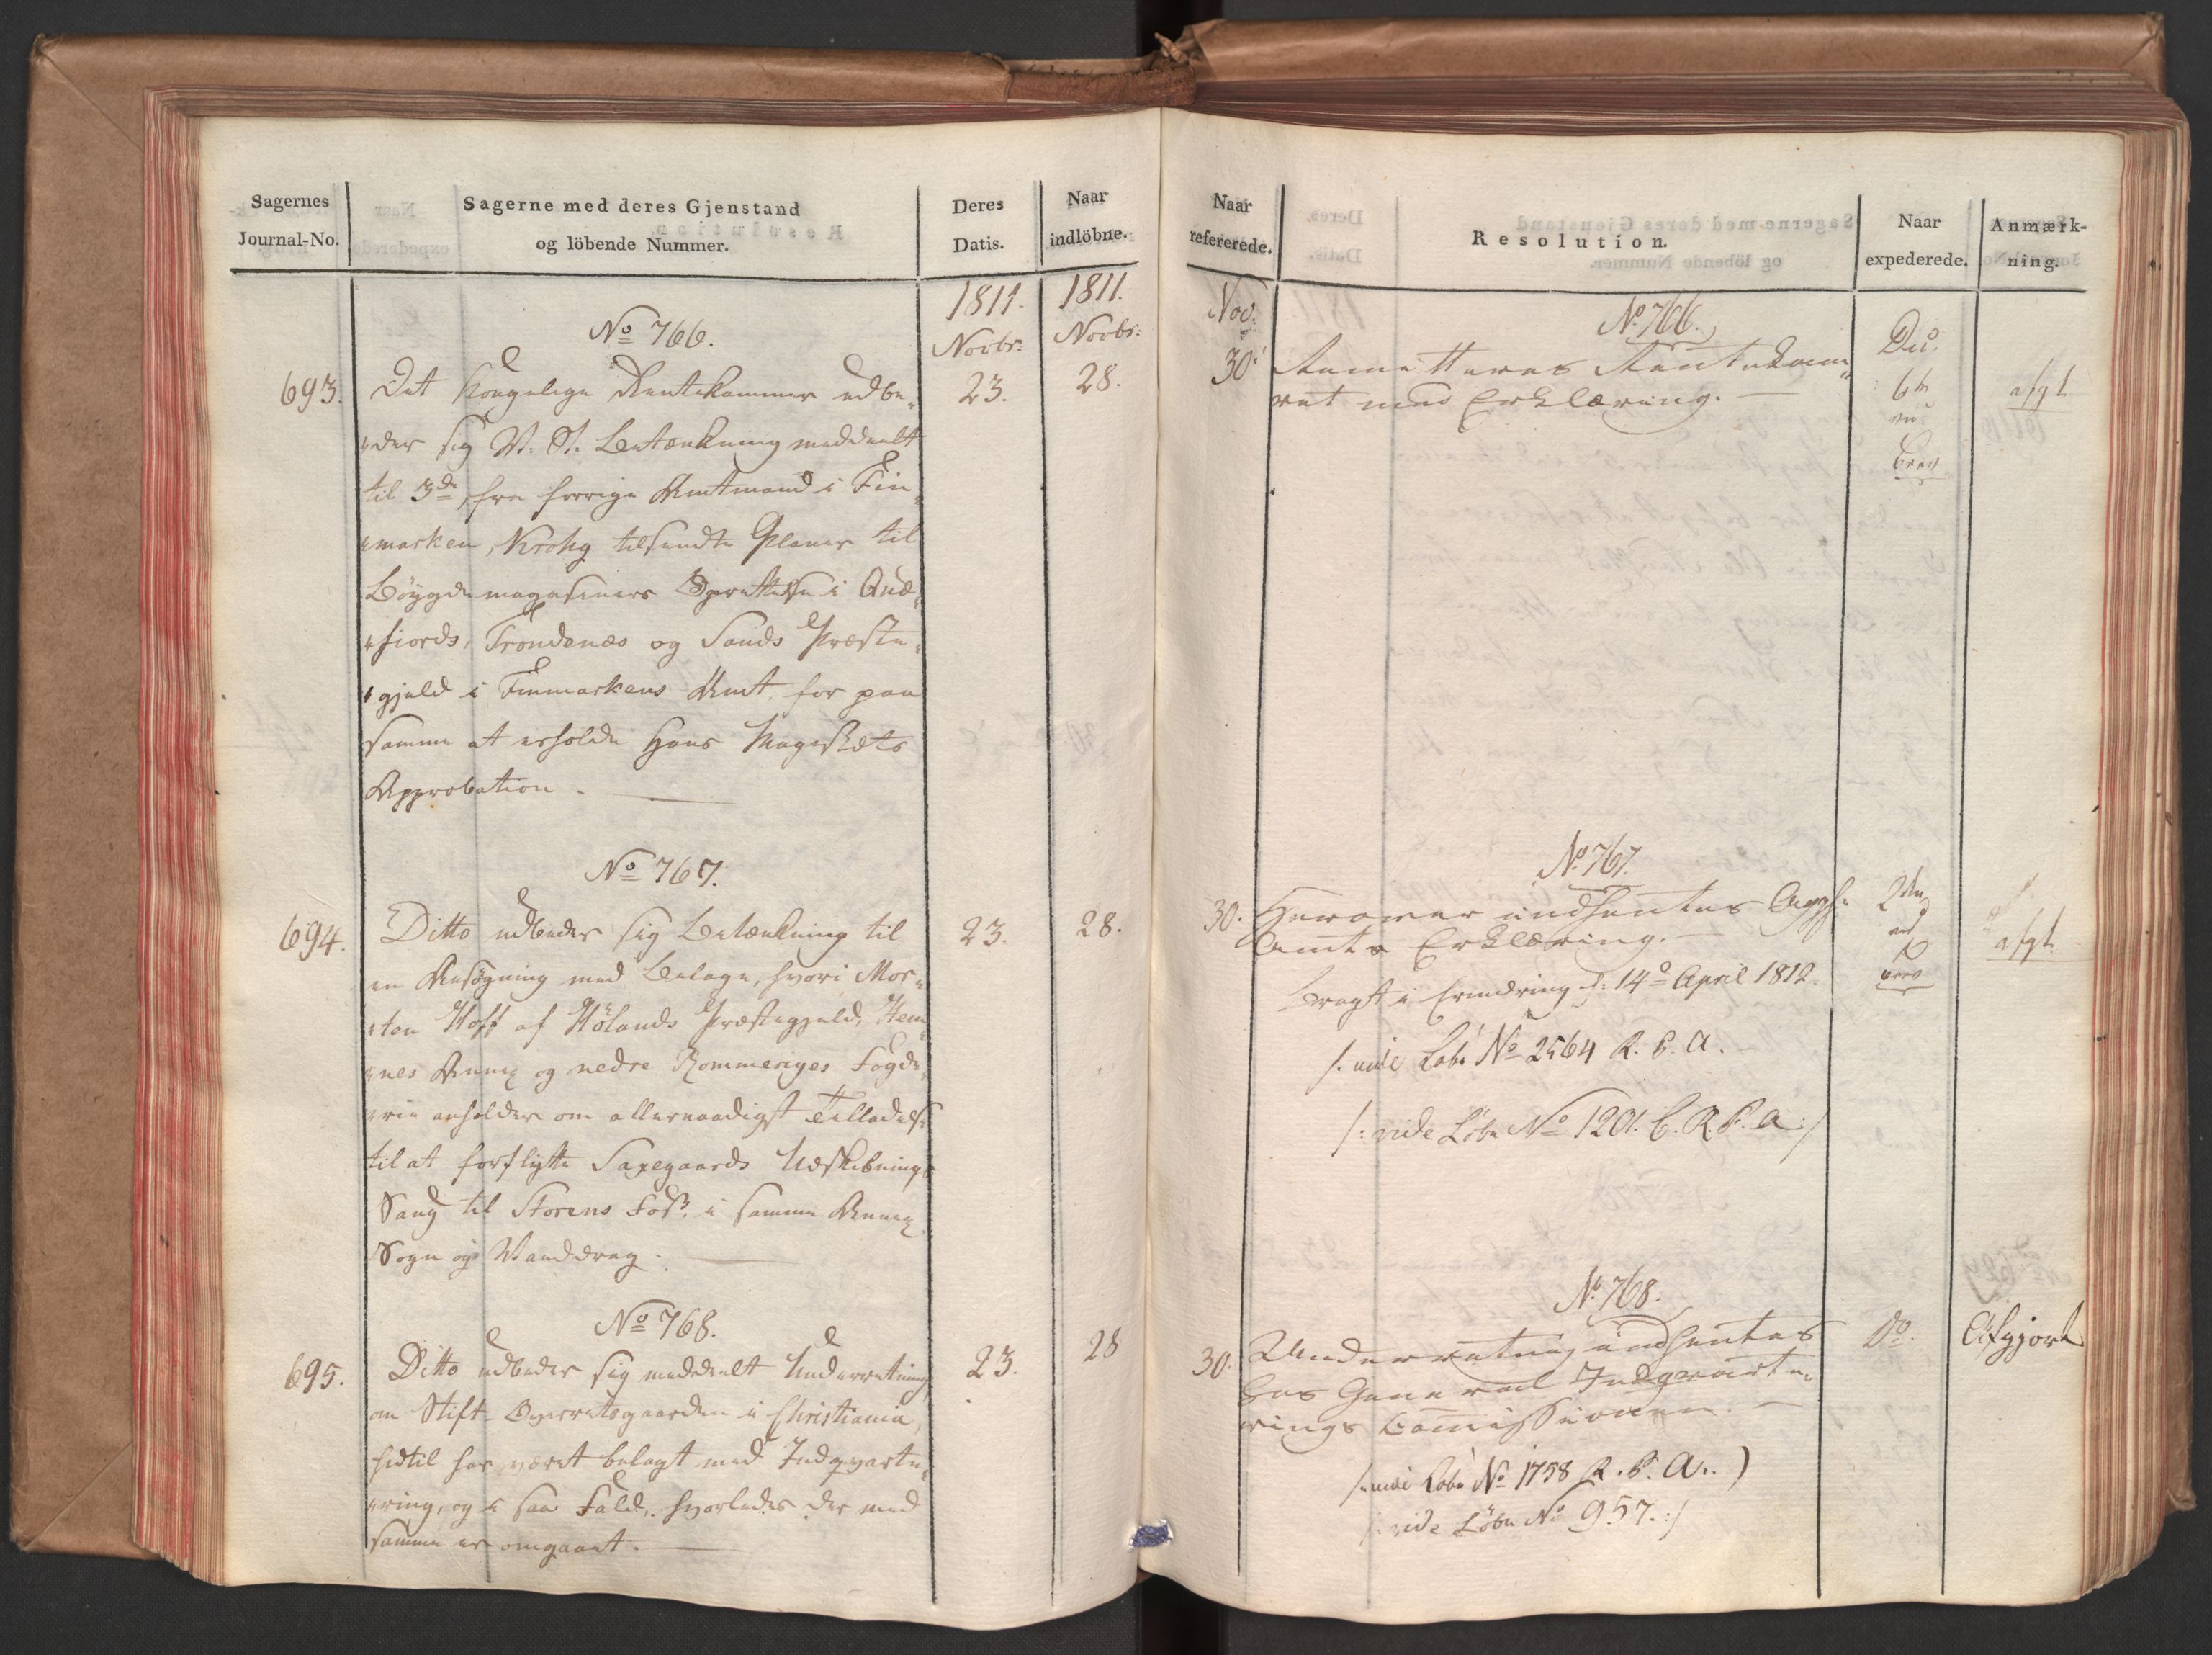 Sagernes
Journal-No.
Sagerne med deres Gjenstand
og löbende Nummer.
Deres
Datis.
Naar
indlöbne.
1811. 1811.
Novbr: Novbr:
No 766.
693. Det Kongelige Rentekammer udbe„ 23. 28.
„der sig V. S. Betænkning meddeelt
til 3de fra forrige Amtmand i Fin„
„marken, Krohg tilsendte Planer til
Böygdemagasiners Oprettelse i Qvæ„
„fiords, Trondenæs og Sands Præste„
„gjeld i Finmarkens Amt for paa
samme at erholde Hans Majestæts
Approbation.
No 767.
694. Ditto udbeder sig Betænkning til 23. 28.
en Ansögning med Bilage, hvori Mor„
„ten Hoff af Hölands Præstegjeld, Hem„
„nes Annex og nedre Rommeriges Fogde„
„rie anholder om allernaadigst Tilladelse
til at forflytte Saxegaards Udskibnings
Saug til Storens Foss i samme Annex
Sogn og Vanddrag.
No 768.
695. Ditto udbeder sig meddeelt Underretning 23. 28
om Stift-Overretsgaarden i Christiania,
hidtil har været belagt med Indqvarte„
„ring, og i saa Fald, hvorledes der med
samme er omgaaet.
Naar
refererede.
Resolution.
Naar
expederede.
Anmærk-
ning.
Nov:
No 766.
30. Remitteres Rentekam„
ret med Erklæring. 6te afgt
ved
Brev
No 767.
30. Herover indhentes
Amts Erklæring. 2den afgt.
Bragt i Erindring d: 14de April 1812.
/: vide Löbe No 2564 R. C. A.
/: vide Löbe No 1201. C. R. C. A :/
Brev
No 768.
30. Underretning indhentes Do. Afgjort
hos General Indqvarte„
rings Comissionen.
/: vide Löbe No 1758 R. C. A. )
/: vide Löbe No 957. :/